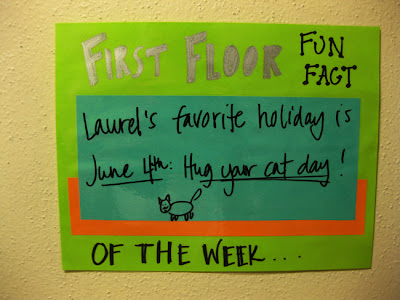 FIRST FLOOR FUN FACT
Laurel's favorite holiday is
June 4th: Hug your cat day!
OF THE WEEK...